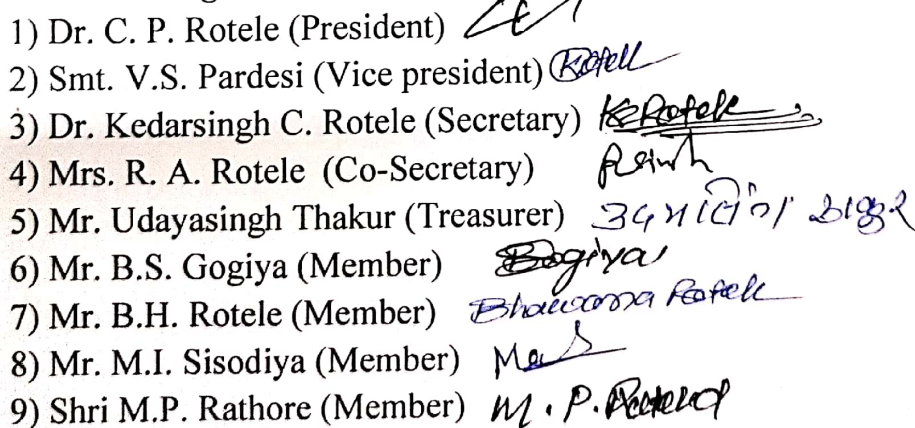 1) Dr. C. P. Rotele (President)
2) Smt. V.S. Pardesi (Vice president) Rotell
3) Dr. Kedarsingh C. Rotele (Secretary) KRotele
4) Mrs. R. A. Rotele (Co-Secretary)
5) Mr. Udayasingh Thakur (Treasurer)
6) Mr. B.S. Gogiya (Member) Bogiya
7) Mr. B.H. Rotele (Member) Bhawana Rotele
8) Mr. M.I. Sisodiya (Member)
9) Shri M.P. Rathore (Member) M. P.